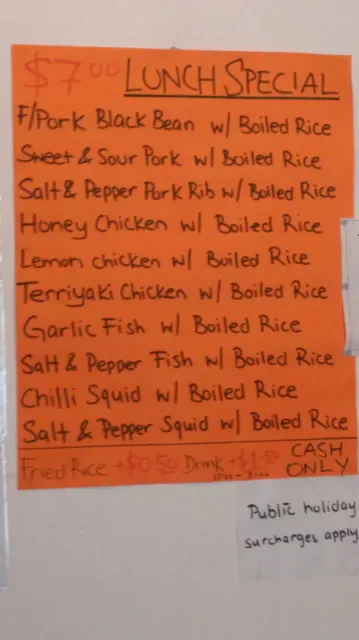 $7.00 LUNCH SPECIAL
F/Pork Black Bean w/ Boiled Rice
Sweet & Sour Pork w/ Boiled Rice
Salt & Pepper Pork Rib w/ Boiled Rice
Honey Chicken w/ Boiled Rice
Lemon chicken w/ Boiled Rice
Terriyaki Chicken w/ Boiled Rice
Garlic Fish w/ Boiled Rice
Salt & Pepper Fish w/ Boiled Rice
Chilli Squid w/ Boiled Rice
Salt & Pepper Squid w/ Boiled Rice
Fried Rice +$0.50 Drink +$1.50 CASH ONLY
Public holiday
surcharges apply